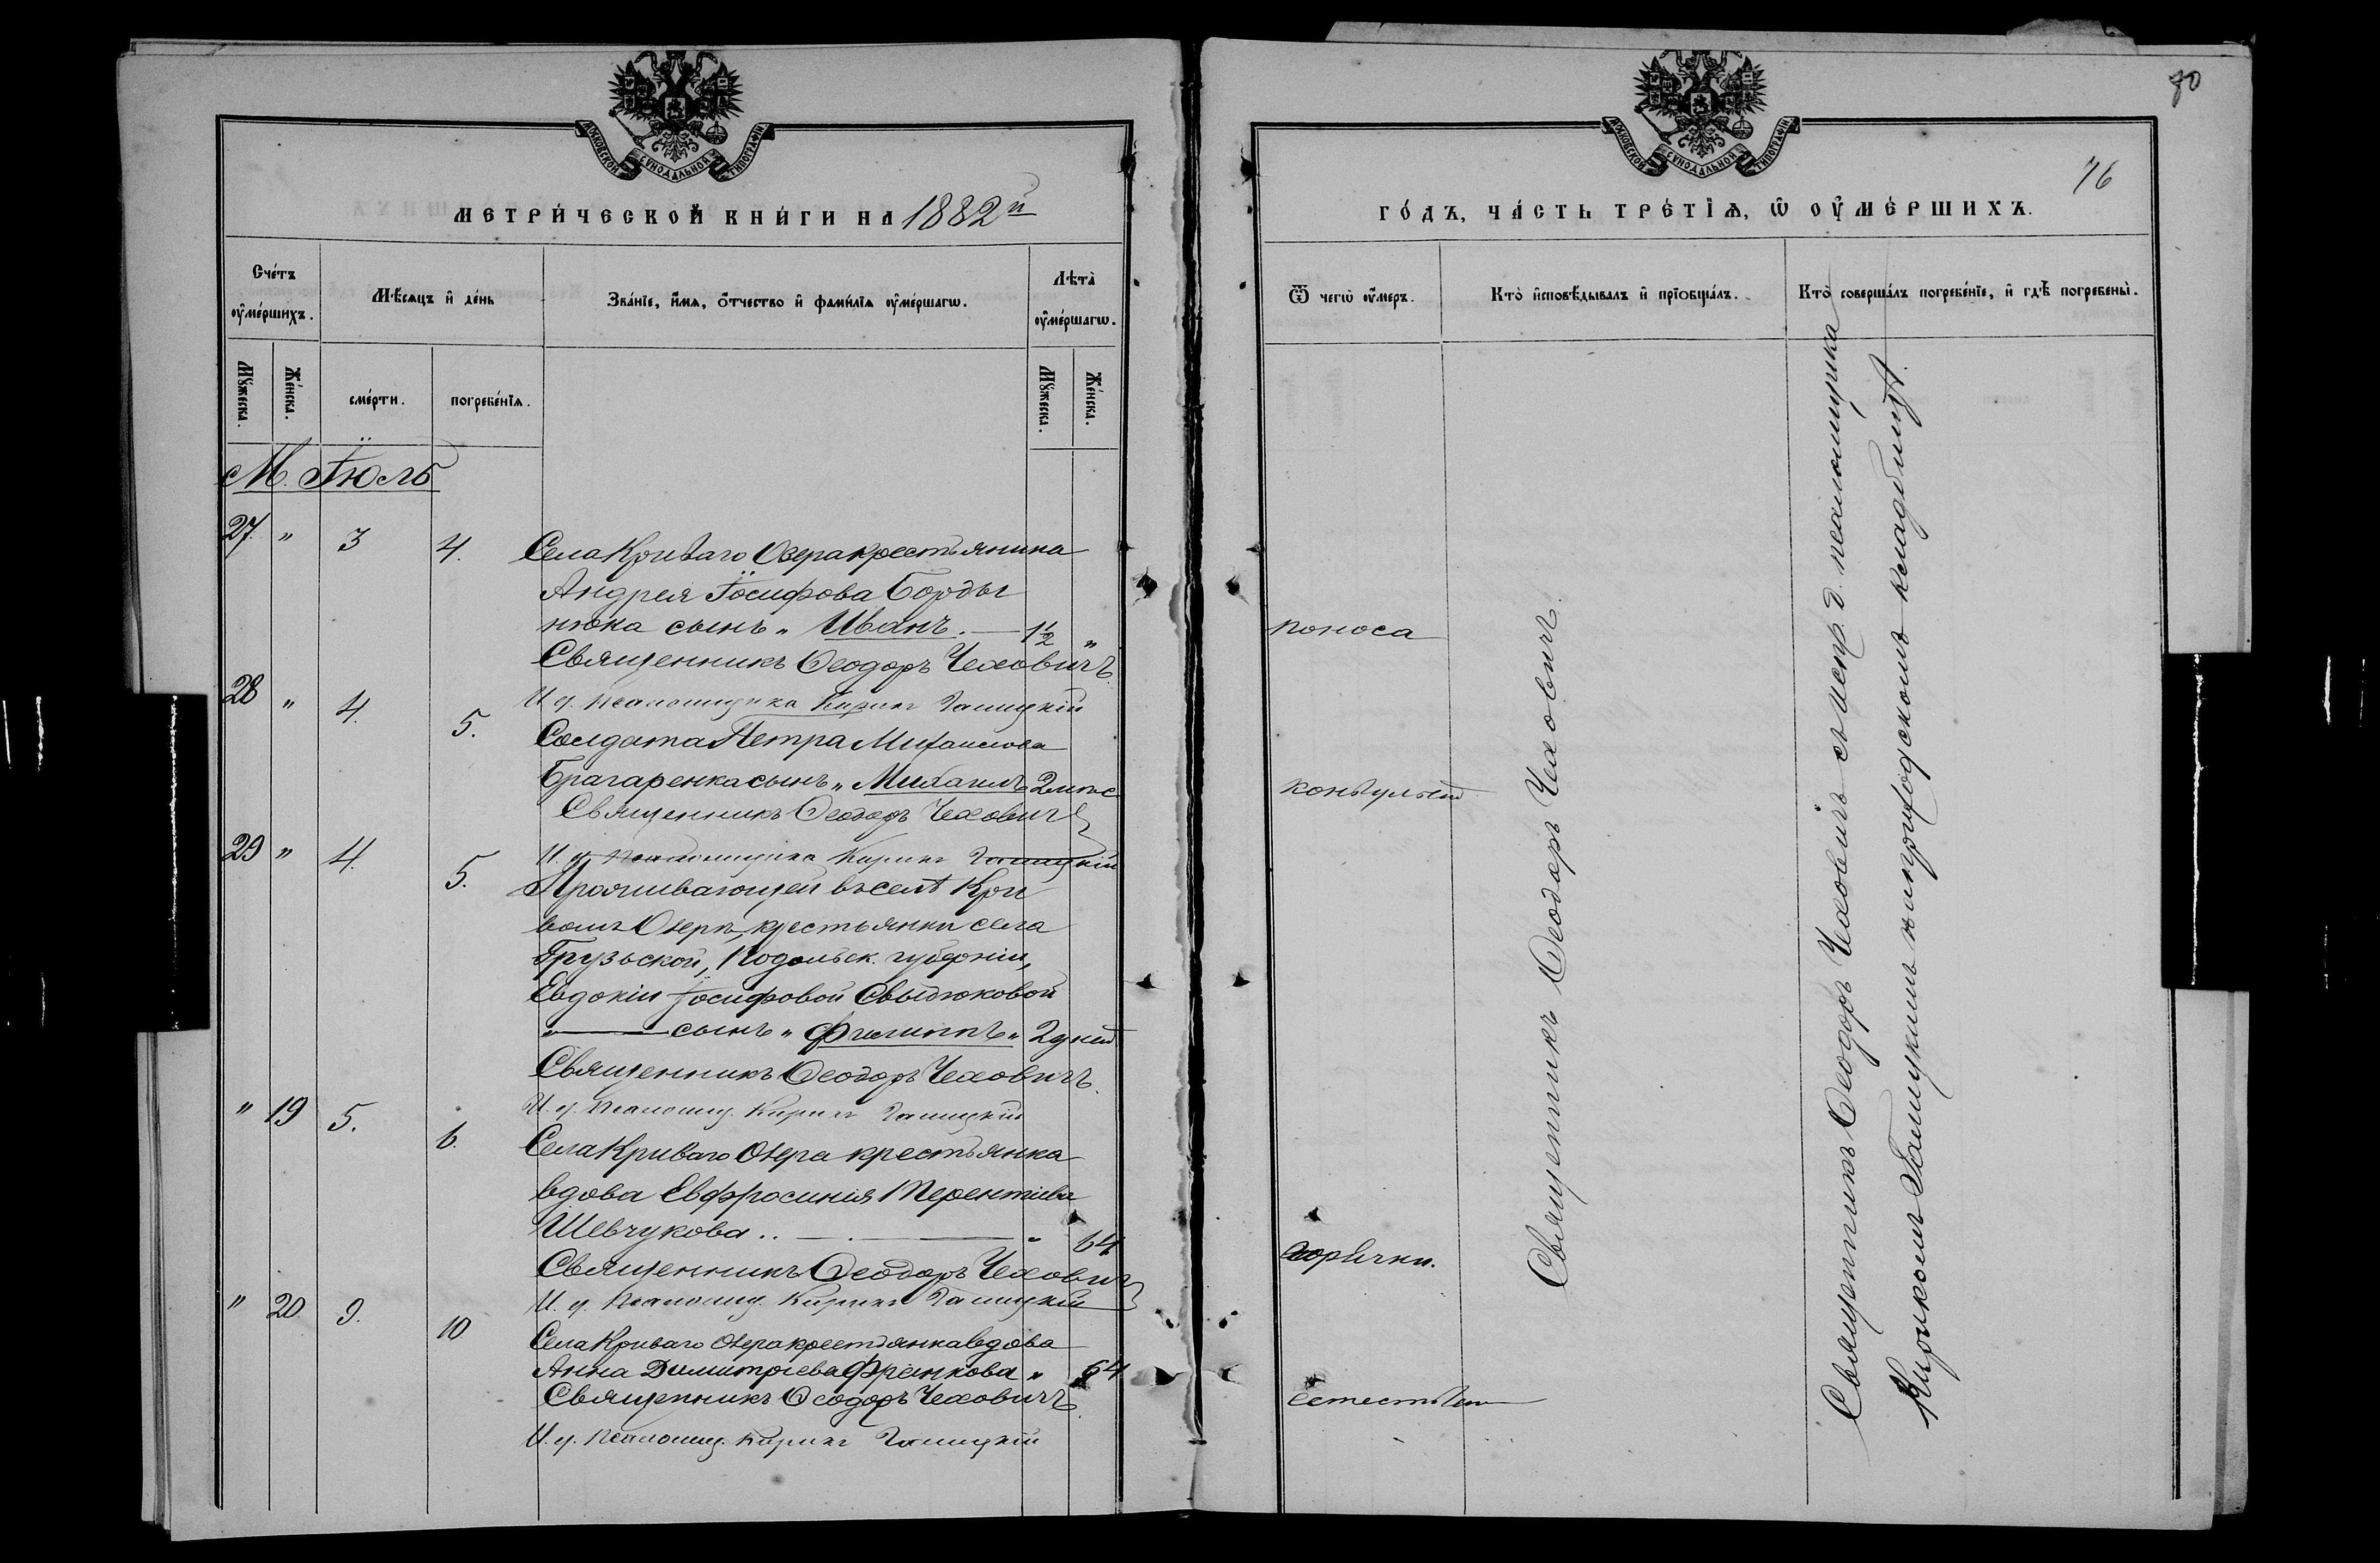 МОСКОВСКОЙ СѴНОДАЛЬНОЙ ТИПОГРАФІИ
МЕТРИ́ЧЕСКОЙ КНИ́ГИ НА 1882й
Сче́тъ оу҆ме́ршихъ.
Мѣ́сяцъ и҆ де́нь
Зва́нїе, и҆́мѧ, ѻ҆́тчество и҆ фами́лїѧ оу҆ме́ршагѡ.
Лѣ́та оу҆ме́ршагѡ.
Мꙋ́жеска.
Же́нска.
сме́рти.
погребе́нїѧ.
Мꙋ́жеска.
Же́нска.
М. Іюль
27. " 3 4. Села Криваго Озера крестьянина
Андрея Іосифова Борды
нюка сынъ „Иванъ. — 1½ "
Священникъ Ѳеодоръ Чеховичъ.
28 " 4. 5. И. д. псаломщика Кирикъ Галицкій
Солдата Петра Михаилова
Брагаренка сынъ „Михаилъ 2 мѣс
Священникъ Ѳеодоръ Чеховичъ
29 " 4. 5. И. д. псаломщика Кирикъ Галицкій
Проживающей въ селѣ Кри
вомъ Озерѣ, крестьянки села
Грузьской, Подольск. губерніи,
Евдокіи Іосифовой Свыдюковой
" — сынъ „Филиппъ„ 2 дней
Священникъ Ѳеодоръ Чеховичъ.
" 19 5. 6. И. д. псаломщ. Кирикъ Галицкій
Села Криваго Озера крестьянка
вдова Евфросинія Терентіева
Шевчукова .. — " 64
Священникъ Ѳеодоръ Чеховичъ
" 20 9. 10 И. д. псаломщ. Кирикъ Галицкій
Села Криваго Озера крестьянка вдова
Анна Димитріева Френкова " 64
Священникъ Ѳеодоръ Чеховичъ.
И. д. псаломщ. Кирикъ Галицкій
80
76
МОСКОВСКОЙ СѴНОДАЛЬНОЙ ТИПОГРАФІИ
ГО́ДЪ, ЧА́СТЬ ТРЕ́ТЇѦ, Ѡ҆ ОУ҆МЕ́РШИХЪ.
Ѿ чегѡ̀ оу҆́меръ.
Кто̀ и҆сповѣ́дывалъ и҆ прїѻбща́лъ.
Кто̀ соверша́лъ погребе́нїе, и҆ гдѣ̀ погребены̀.
поноса
конвульсій
горячки.
естествен
Священникъ Ѳеодоръ Чеховичъ.
Священникъ Ѳеодоръ Чеховичъ съ испр. д. псаломщика
Кирикомъ Галицкимъ на приходскомъ кладбищѣ.